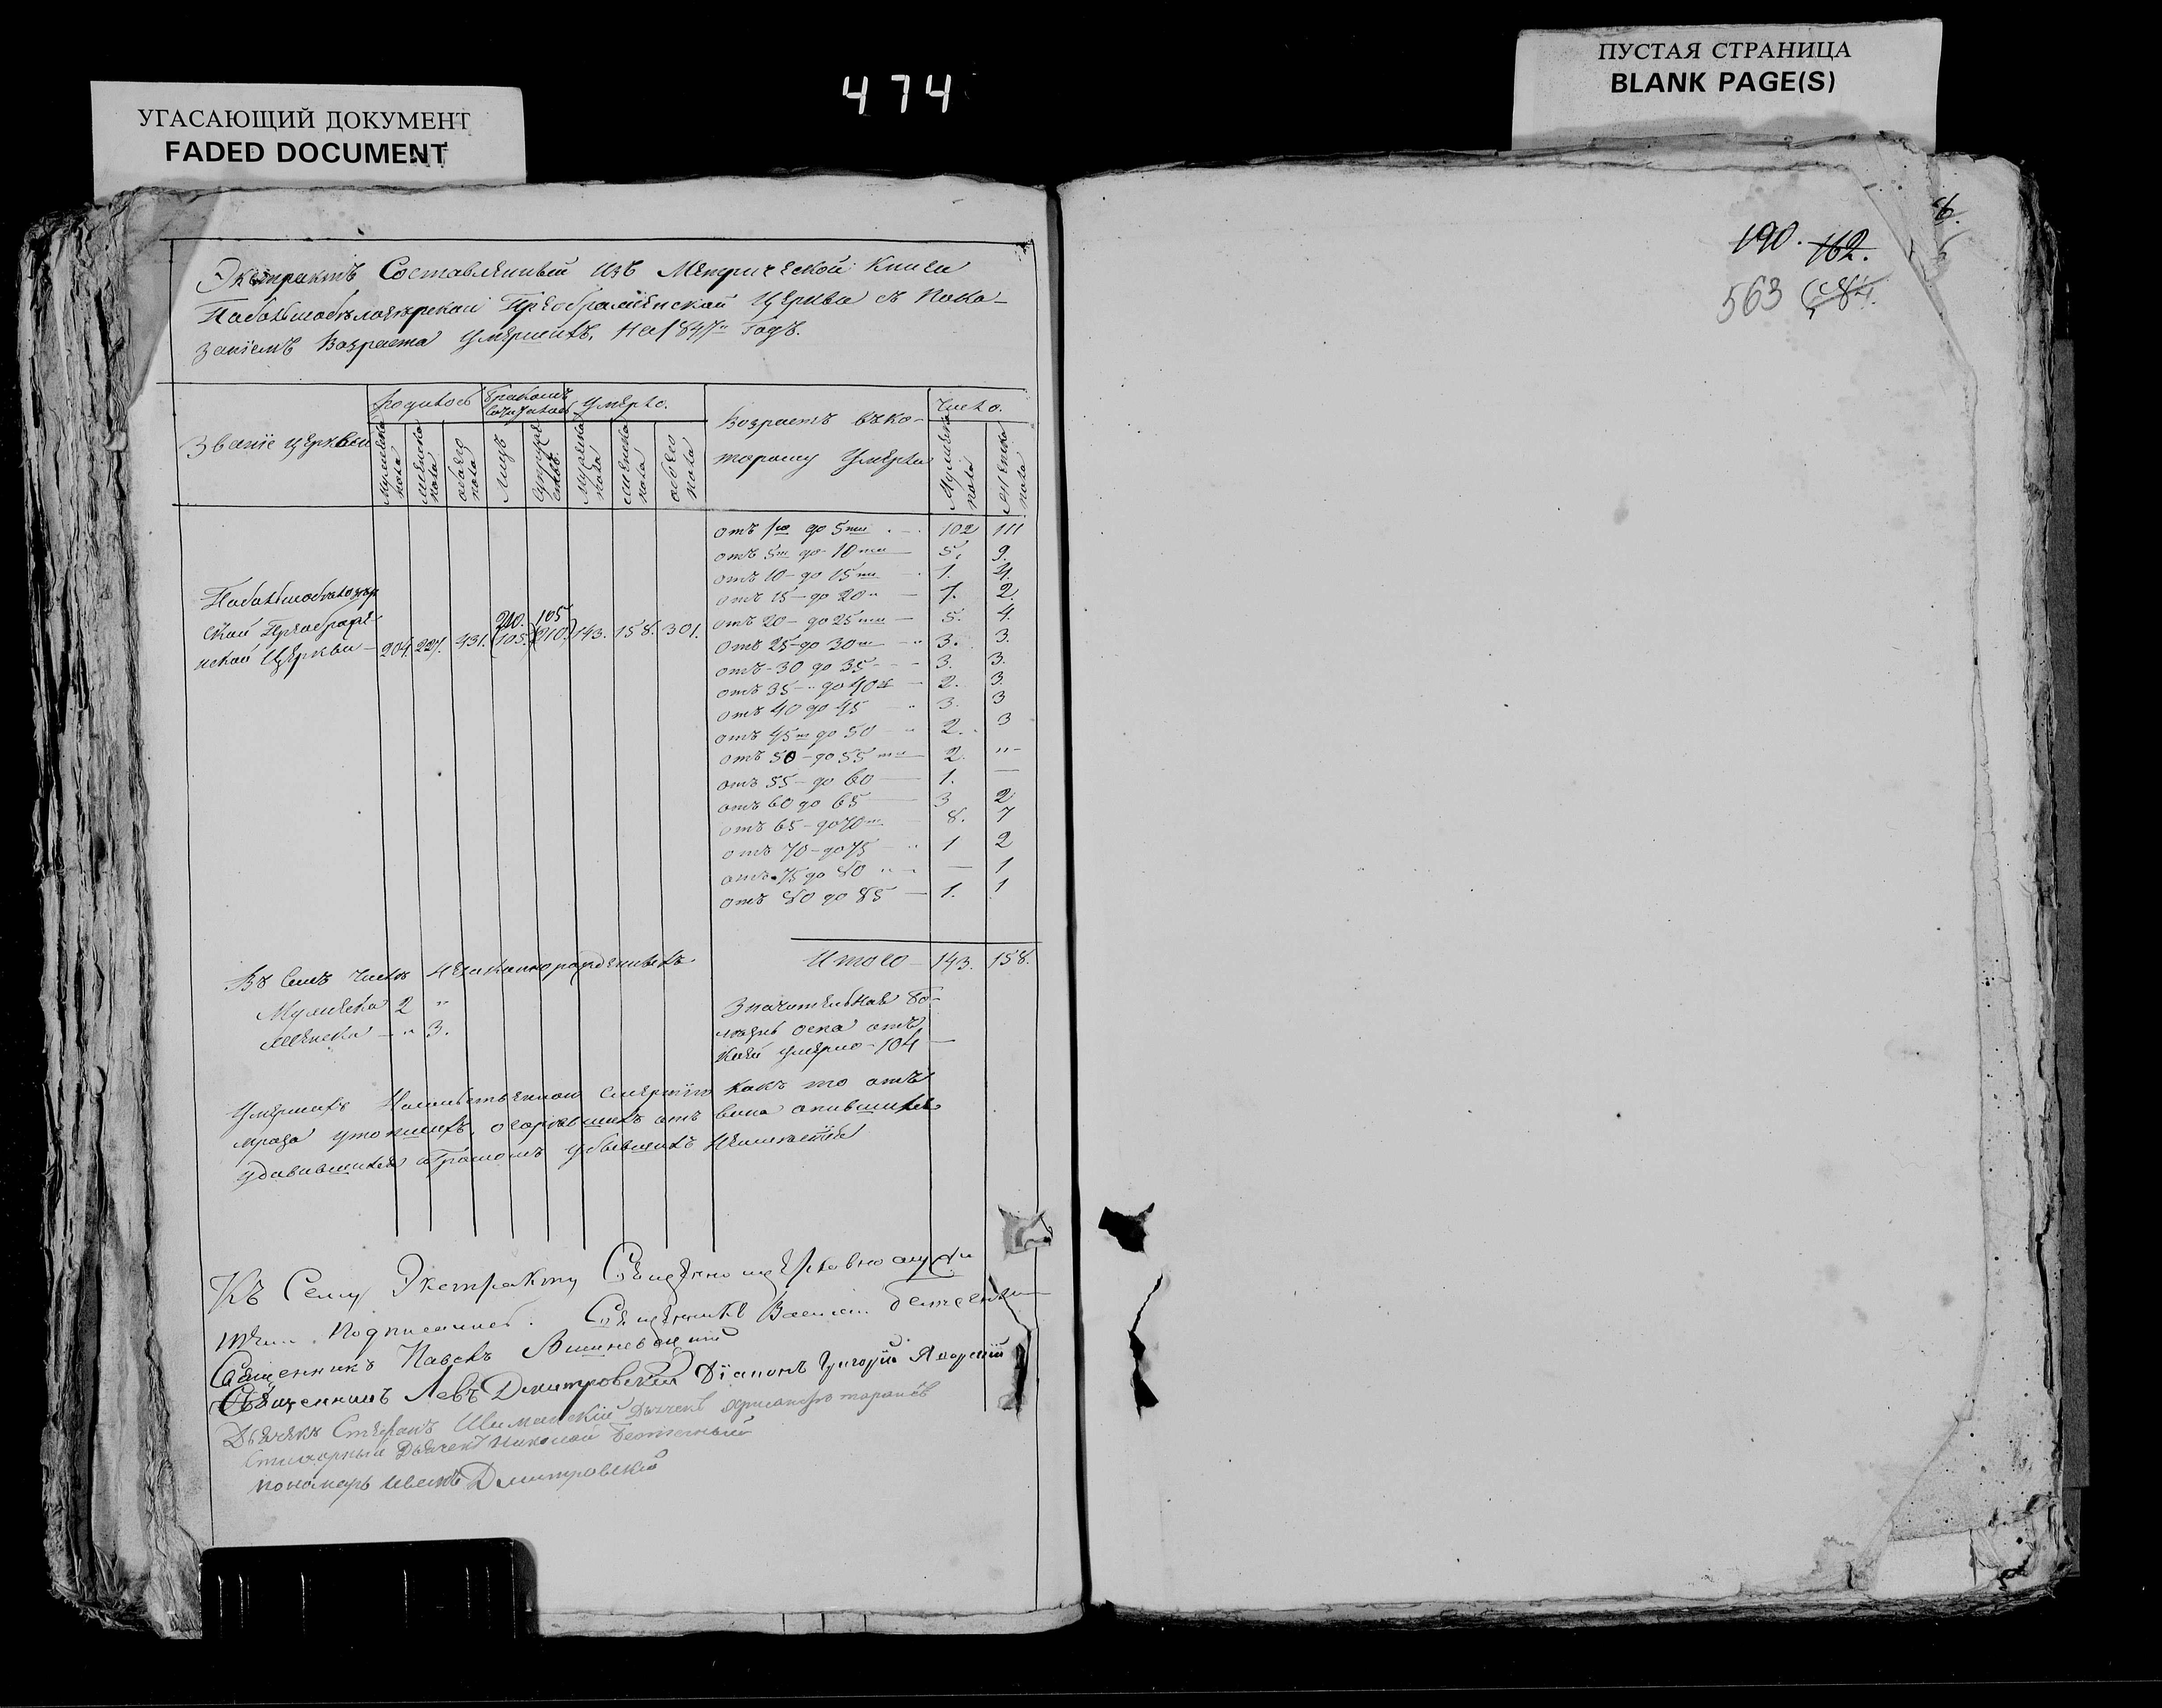 474
УГАСАЮЩИЙ ДОКУМЕНТ
FADED DOCUMENT
ПУСТАЯ СТРАНИЦА
BLANK PAGE(S)
Экстрактъ Составленный изъ Метрической Книги
Преображенской Церкви съ пока-
заніемъ Возраста Умершихъ, На 1847й Годъ.
Званіе церквей
родилось
Бракомъ Сочеталось
Умерло.
Возрастъ въ ко-
торому Умерли
Число.
Мужеска пола
Женска пола
обоего пола
Лицъ
Супружествъ
Мужеска пола
Женска пола
обоего пола
Мужеска пола
Женска пола
ской Преображе-
нской Церкви - 204. 227. 431. 210. (105.) 105 (210.) 143. 158. 301.
отъ 1го до 5ти 102 111
отъ 5ти до 10ти 5. 9.
отъ 10 - до 15ти 1. 4.
отъ 15 - до 20 1. 2.
отъ 20 - до 25ти 5. 4.
отъ 25 до 30ти 3. 3.
отъ 30 до 35 3. 3.
отъ 35 - до 40 2. 3.
отъ 40 до 45 3. 3
отъ 45ти до 50 2. 3
отъ 50 - до 55ти 2. "-
отъ 55 - до 60 1. —
отъ 60 до 65 3 2
отъ 65 - до 70ти 8. 7
отъ 70 - до 75 1 2
отъ 75 до 80 — 1
отъ 80 до 85 1. 1
Итого 143. 158.
Въ Семъ Числѣ незаконнорожденныхъ
Мужеска 2 "
Женска - " 3.
Значительная бо-
лѣзнь оспа отъ
коей умерло - 104
Умершихъ Насильственною смертію какъ то отъ
мраза утопшихъ, огорѣвшихъ отъ вина опившихся
удавившихся и Громомъ убывшихъ Неимѣется
Къ Сему Экстракту Священноцерковнослужи
тели Подписались. Священникъ Василій
Священникъ Павелъ Вишневецкій
Священникъ Левъ Дмитровскій Діаконъ Григорій Яворскій
Дьячекъ Стефанъ Шиманскій Дьячекъ
Стихарный Дьячекъ Николай
пономарь Иванъ Дмитровскій
190. 162.
563 684.